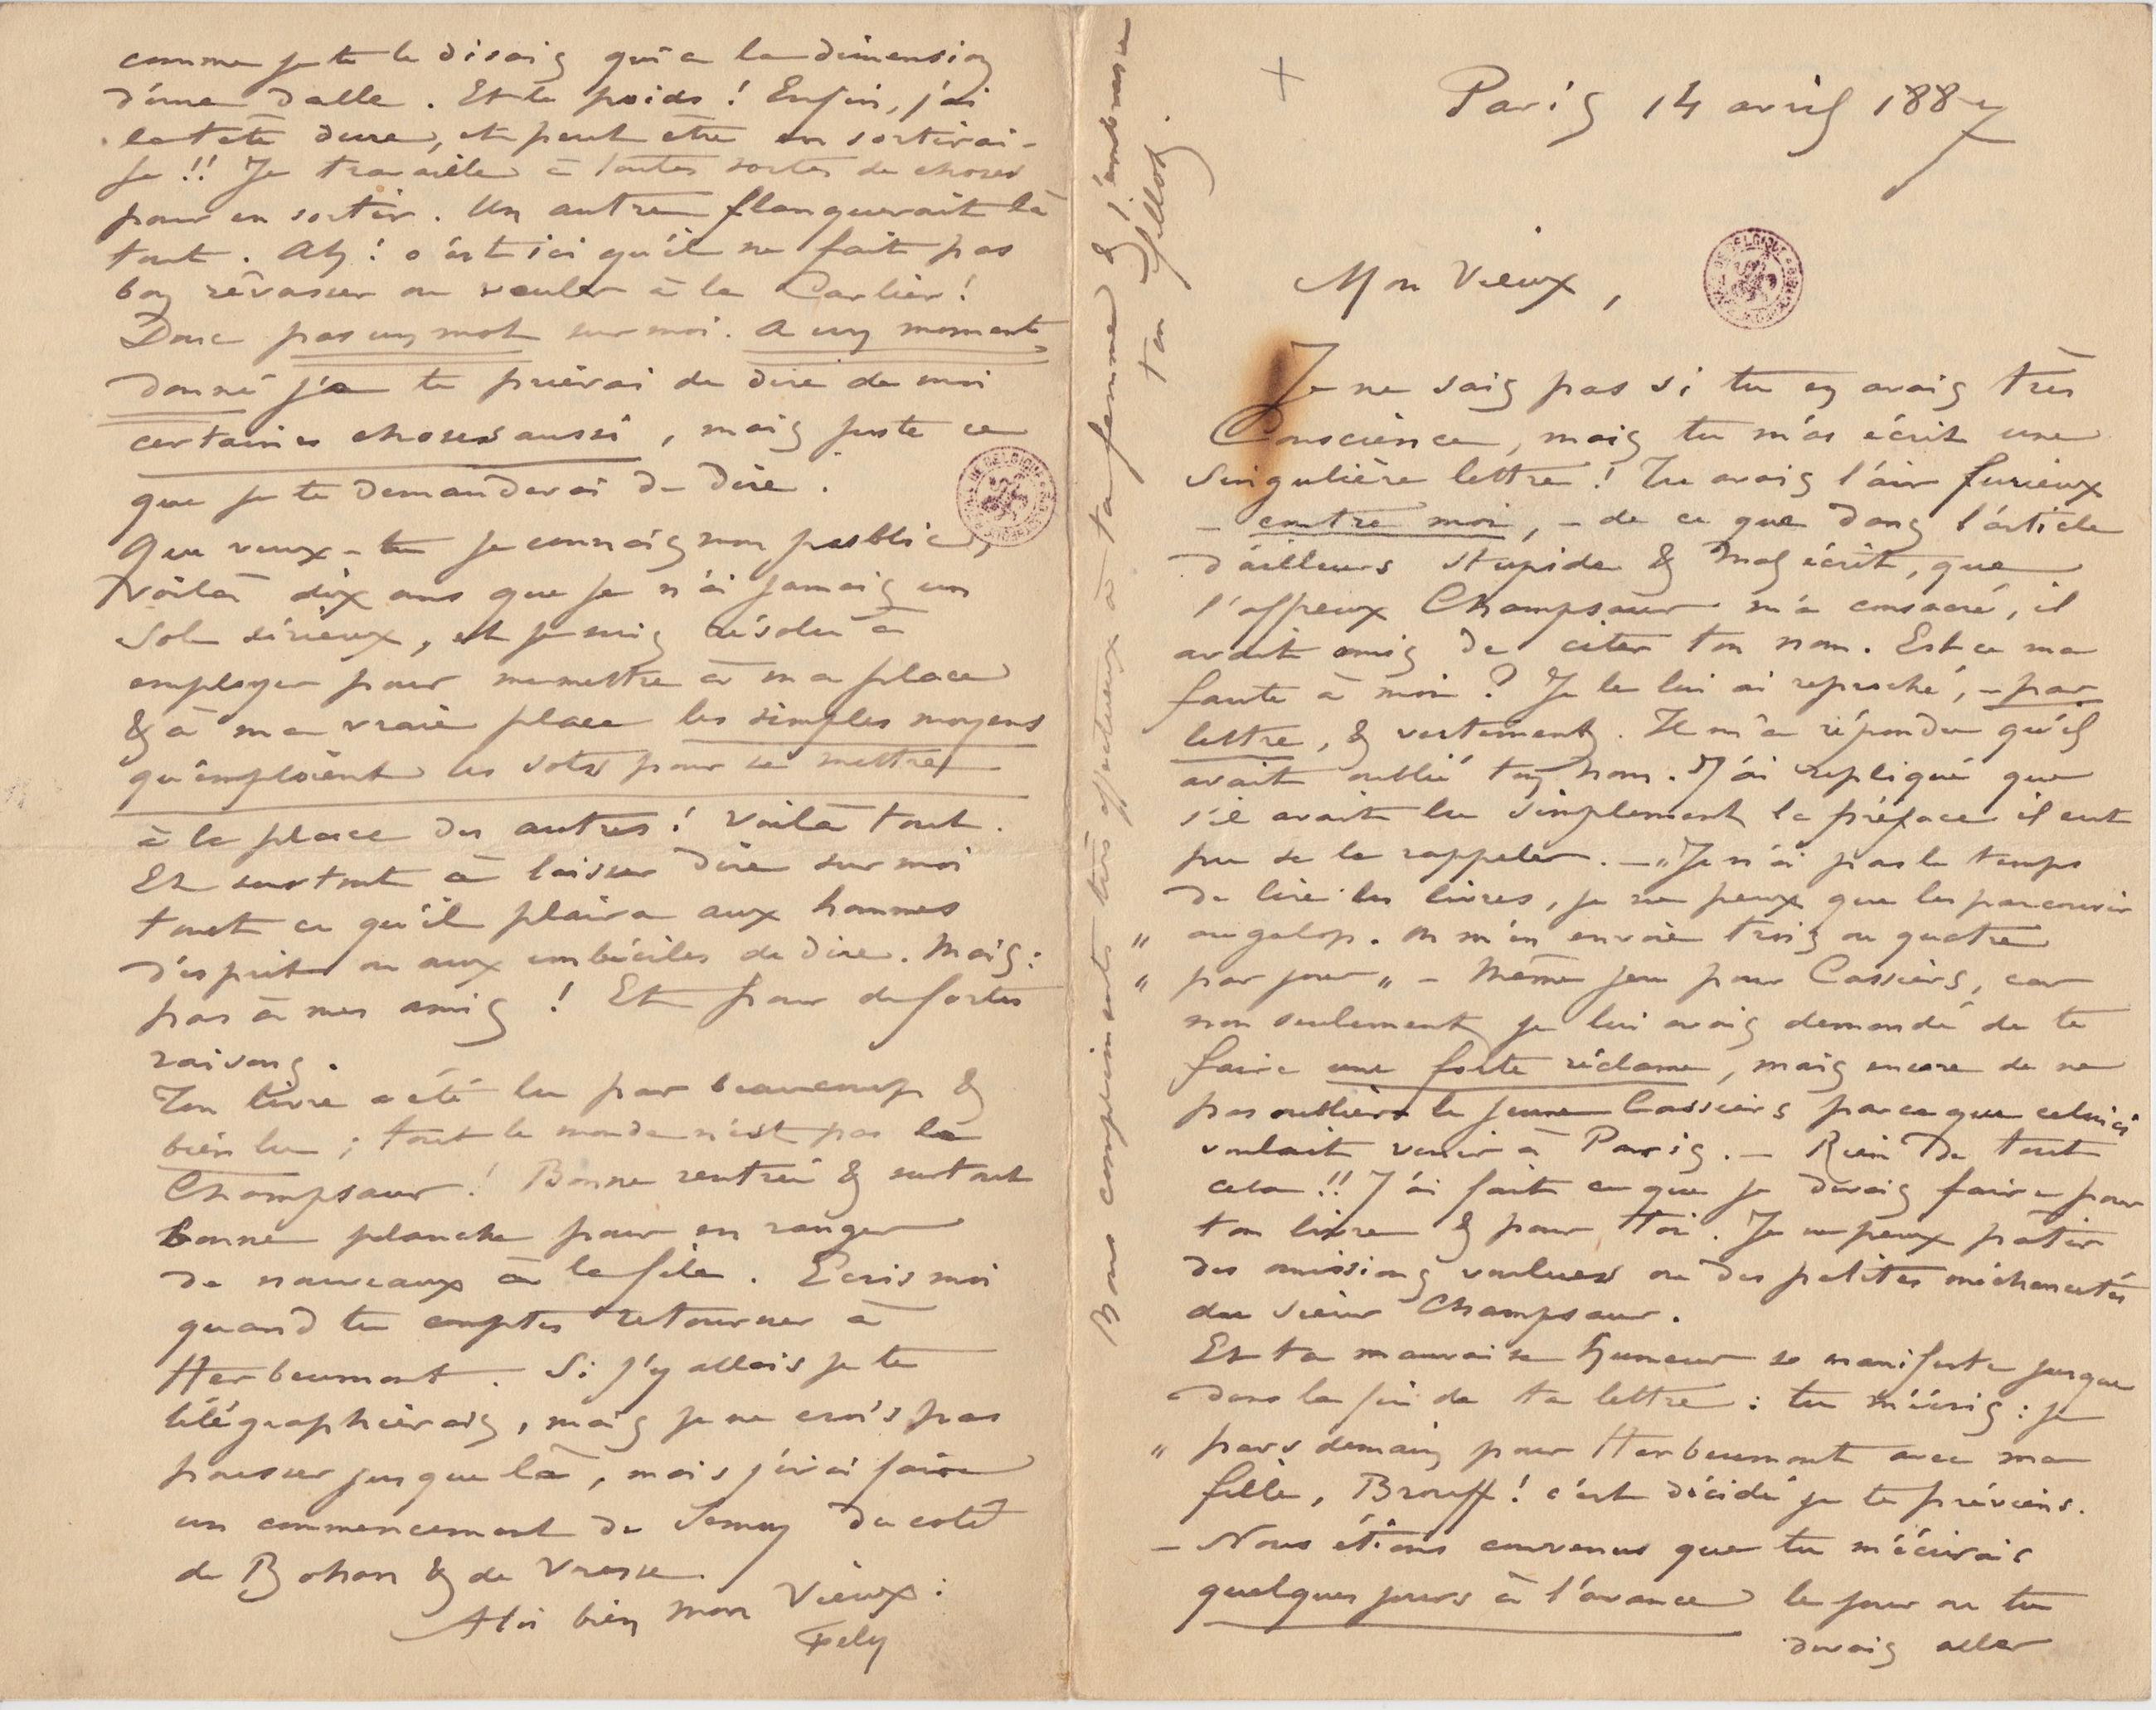 Paris 14 avril 1887
Mon Vieux,
Je ne sais pas si tu en avais très
Conscience, mais tu m'as écrit une
singulière lettre ! Tu avais l'air furieux
– contre moi, – de ce que dans l'article
d'ailleurs stupide & mal écrit, que
l'affreux Champsaur m'a consacré, il
avait omis de citer ton nom. Est-ce ma
faute à moi ? Je le lui ai reproché, – par
lettre, & vertement. Il m'a répondu qu'il
avait oublié ton nom. J'ai repliqué que
s'il avait lu simplement la préface il eut
pu se le rappeler. – „Je n'ai pas le temps
de lire les livres, je ne peux que les parcourir
„ au galop. On m'en envoie trois ou quatre
„ par jour „ – Même jeu pour Cassiers, car
non seulement je lui avais demandé de te
faire une forte réclame, mais encore de ne
pas oublier le jeune Cassiers parce que celui ci
voulait venir à Paris. – Rien De tout
cela !! J'ai fait ce que je devais faire pour
ton livre & pour toi. Je ne peux pâtir
des omissions voulues ou des petites méchancetés
du sieur Champsaur.
Et ta mauvaise humeur se manifeste jusque
dans la fin de ta lettre : tu m'écris : je
„ pars demain pour Herbeumont avec ma
fille, Brouff ! c'est décidé je te préviens.
– Nous étions convenus que tu m'écrirais
quelques jours à l'avance le jour ou tu
devais aller
comme je te le disais qui a la dimension
d'une dalle. Et le poids ! Enfin, j'ai
la tête dure, et peut être en sortirai-
je !! Je travaille à toutes sortes de choses
pour en sortir. Un autre flanquerait là
tout. Ah ! c'est ici qu'il ne fait pas
bon rêvasser ou veuler à la Carlier !
Donc pas un mot sur moi. A un moment
donné je te prierai de dire de moi
certaines choses aussi, mais juste ce
que je te demanderai de dire.
Que veux-tu je connais mon public,
Voilà dix ans que je n'ai jamais un
sol sérieux, et je suis résolu à
employer pour me mettre à ma place
& à ma vraie place les simples moyens
qu'emploient les sots pour se mettre
à la place des autres ! Voilà tout.
Et surtout à laisser dire sur moi
tout ce qu'il plaira aux hommes
d'esprit ou aux imbéciles de dire. Mais :
pas à mes amis ! Et pour de fortes
raisons.
Ton livre a été lu par beaucoup &
bien lu ; tout le monde n'est pas le
Champsaur ! Bonne rentrée & surtout
bonne planche pour en ranger
de nouveaux à la file. Ecris moi
quand tu comptes retourner à
Herbeumont. Si j'y allais je te
télégraphierais, mais je ne crois pas
pousser jusque là, mais j'irai faire
un commencement de Semoy du coté
de Bohan & de Vresse.
A toi bien mon Vieux :
Fely
Bons compliments très affectueux à ta femme & j'embrasse
ton fillot.